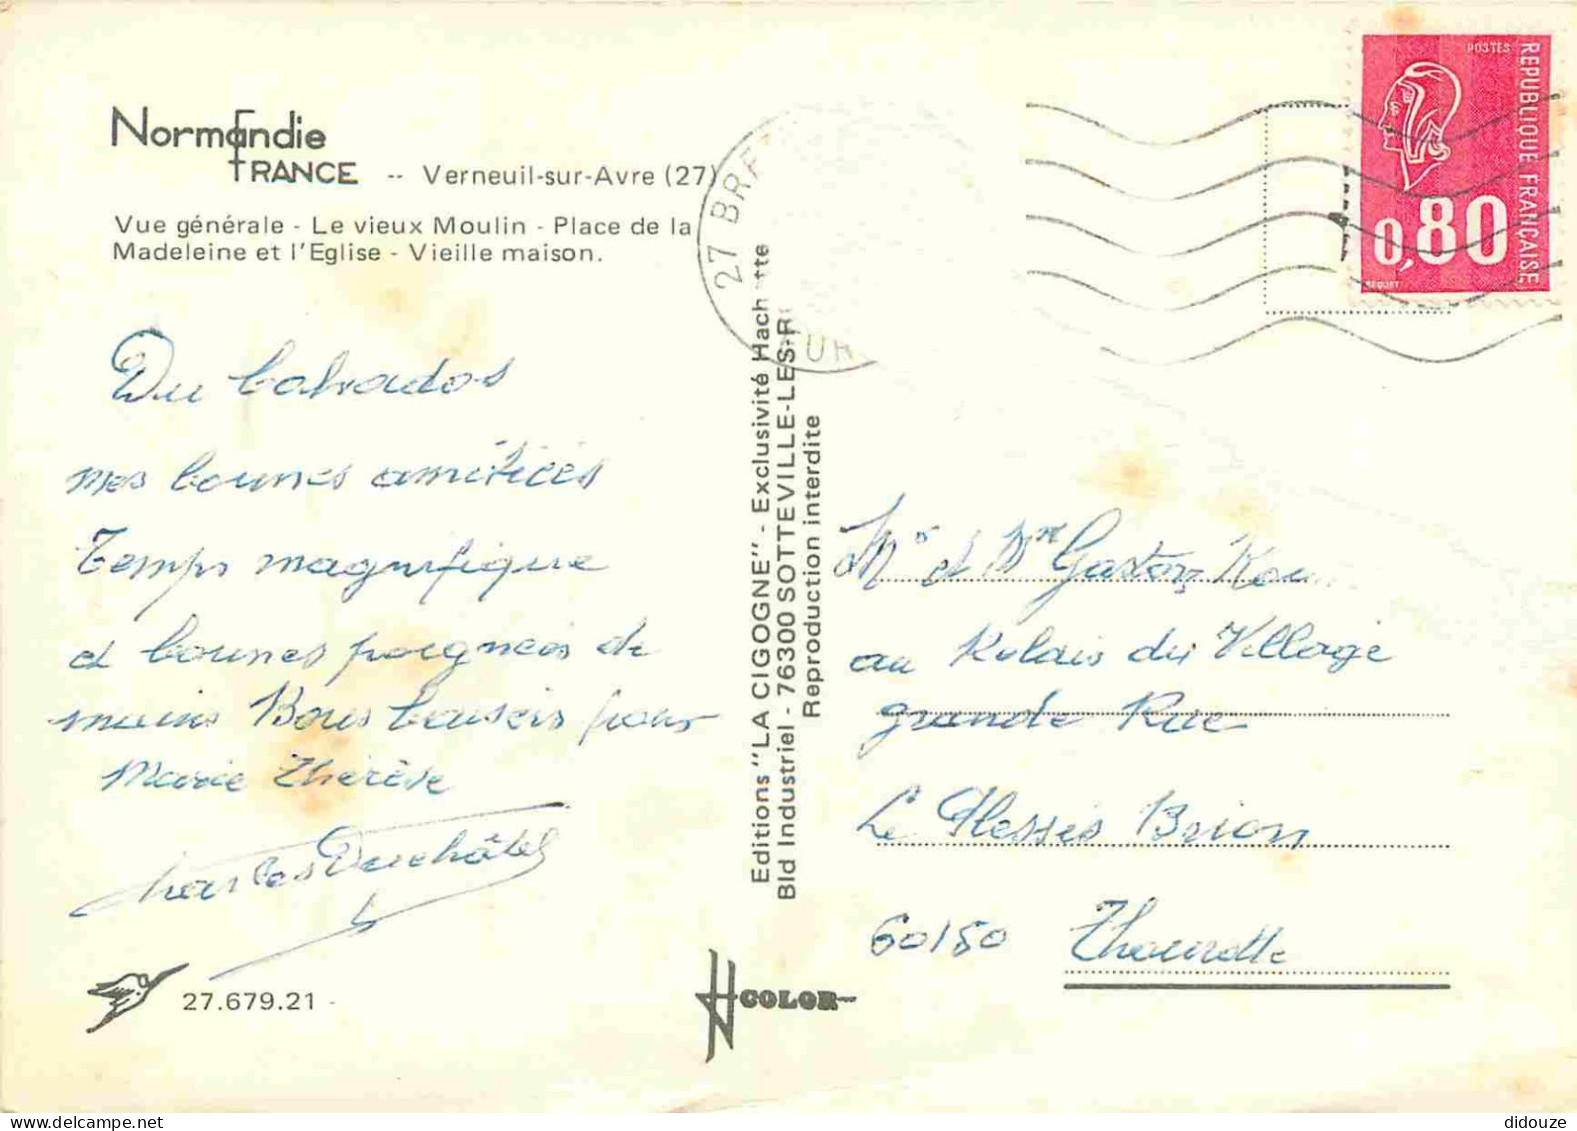 Normandie
FRANCE -- Verneuil-sur-Avre (27)
Vue générale - Le vieux Moulin - Place de la
Madeleine et l'Eglise - Vieille maison.
Du Calvados
mes bonnes amitiées
Temps magnifique
et bonnes poignées de
mains Bons baisers pour
Marie Thérèse
Charles Duchâtel
27.679.21
Editions "LA CIGOGNE" - Exclusivité Hach tte
Bld Industriel - 76300 SOTTEVILLE-LES-R
Reproduction interdite
COLOR
27 BR
UR
POSTES
REPUBLIQUE FRANÇAISE
0,80
BEQUET
Mr et Mme Gaston
au Relais du Village
grande Rue
Le Plessis Brion
60150 Thourotte
didouze